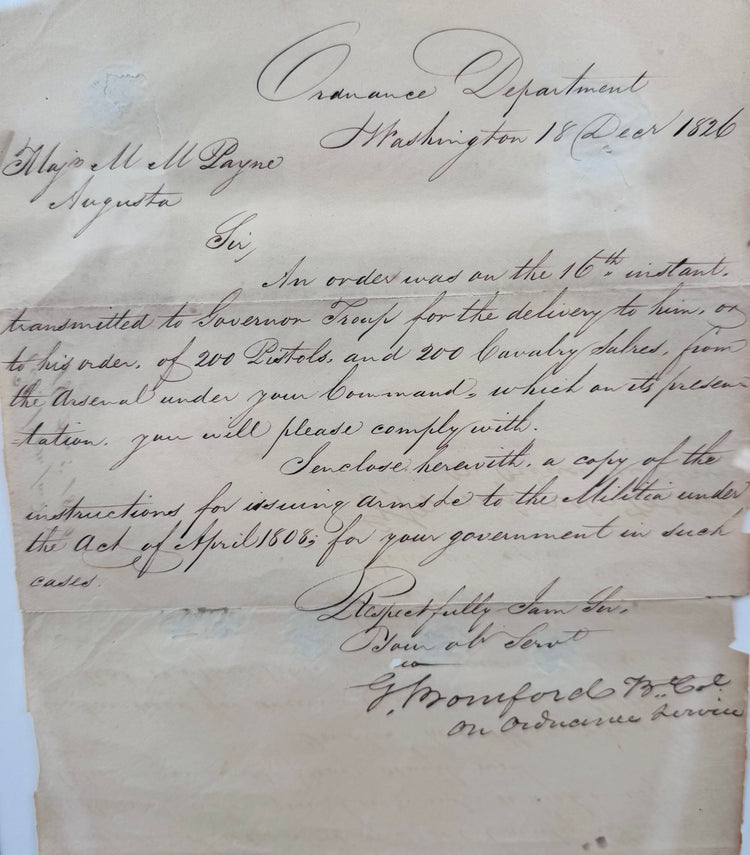 Ordnance Department
Washington 18 Decr 1826
Majr M M Payne
Augusta
Sir,
An order was on the 16th instant,
transmitted to Governor Troup for the delivery to him, or
to his order, of 200 Pistols, and 200 Cavalry Sabres, from
the Arsenal under your Command, which on its presen-
-tation, you will please comply with.
I enclose, herewith, a copy of the
instructions for issuing arms &c to the Militia under
the Act of April 1808; for your government in such
cases.
Respectfully I am Sir,
Your obt Servt
G. Bomford Bt. Col
on Ordnance Service